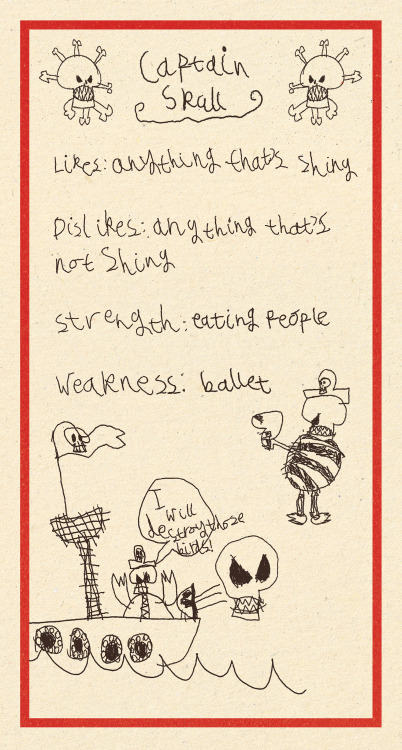 Captain
Skull
Likes: anything that's shiny
Dislikes: anything that's
not shiny
strength: eating people
Weakness: ballet
I
will
destroy those
birds!